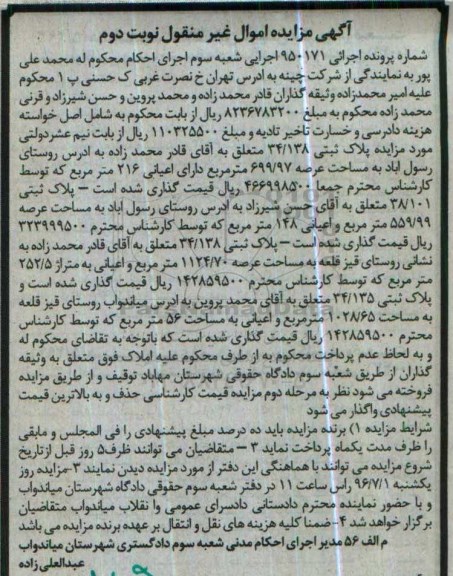 آگهی مزایده اموال غیر منقول نوبت دوم
شماره پرونده اجرائی ۹۵۰۱۷۱ اجرایی شعبه سوم اجرای احکام محکوم له محمد علی
پور به نمایندگی از شرکت چینه به ادرس تهران خ نصرت غربی ک حسنی پ ۱ محکوم
علیه امیر محمدزاده وثیقه گذاران قادر محمد زاده و محمد پروین و حسن شیرزاد و قرنی
محمد زاده محکوم به مبلغ ۸۲۳۶۷۸۳۲۰۰ ریال از بابت محکوم به شامل اصل خواسته
هزینه دادرسی و خسارت تاخیر تادیه و مبلغ ۱۱۰۳۲۵۵۰۰ ریال از بابت نیم عشر دولتی
مورد مزایده پلاک ثبتی ۳۴/۱۳۸ متعلق به آقای قادر محمد زاده به ادرس روستای
رسول اباد به مساحت عرصه ۶۹۹/۹۷ مترمربع دارای اعیانی ۲۱۶ متر مربع که توسط
کارشناس محترم جمعا ۴۶۶۹۹۸۵۰۰ ریال قیمت گذاری شده است – پلاک ثبتی
۳۸/۱۰۱ متعلق به آقای حسن شیرزاد به ادرس روستای رسول اباد به مساحت عرصه
۵۵۹/۹۹ متر مربع و اعیانی ۱۴۸ متر مربع که توسط کارشناس محترم ۳۲۳۹۹۹۵۰۰
ریال قیمت گذاری شده است – پلاک ثبتی ۳۴/۱۳۸ متعلق به آقای قادر محمد زاده به
نشانی روستای قیز قلعه به مساحت عرصه ۱۱۲۴/۷۰ متر مربع و اعیانی به متراژ ۲۵۲/۵
متر مربع که توسط کارشناس محترم ۱۴۲۸۵۹۵۰۰ ریال قیمت گذاری شده است و
پلاک ثبتی ۳۴/۱۳۵ متعلق به آقای محمد پروین به ادرس میاندواب روستای قیز قلعه
به مساحت ۱۰۲۸/۶۵ مترمربع و اعیانی به مساحت ۵۶ متر مربع که توسط کارشناس
محترم ۱۴۲۸۵۹۵۰۰ ریال قیمت گذاری شده است که باتوجه به تقاضای محکوم له
و به لحاظ عدم پرداخت محکوم به از طرف محکوم علیه املاک فوق متعلق به وثیقه
گذاران از طریق شعبه سوم دادگاه حقوقی شهرستان مهاباد توقیف و از طریق مزایده
فروخته می شود نظر به مرحله دوم مزایده قیمت کارشناسی حذف و به بالاترین قیمت
پیشنهادی واگذار می شود
شرایط مزایده ۱) برنده مزایده باید ده درصد مبلغ پیشنهادی را فی المجلس و مابقی
را ظرف مدت یکماه پرداخت نماید ۳ – متقاضیان می توانند ظرف ۵ روز قبل از تاریخ
شروع مزایده می توانند با هماهنگی این دفتر از مورد مزایده دیدن نمایند ۳-مزایده روز
یکشنبه ۹۶/۷/۱ راس ساعت ۱۱ در دفتر شعبه سوم حقوقی دادگاه شهرستان میاندواب
و با حضور نماینده محترم دادستانی دادسرای عمومی وا نقلاب میاندواب متقاضیان
برگزار خواهد شد ۴- ضمنا کلیه هزینه های نقل و انتقال بر عهده برنده مزایده می باشد
م الف ۵۶ مدیر اجرای احکام مدنی شعبه سوم دادگستری شهرستان میاندواب
عبدالعلی زاده